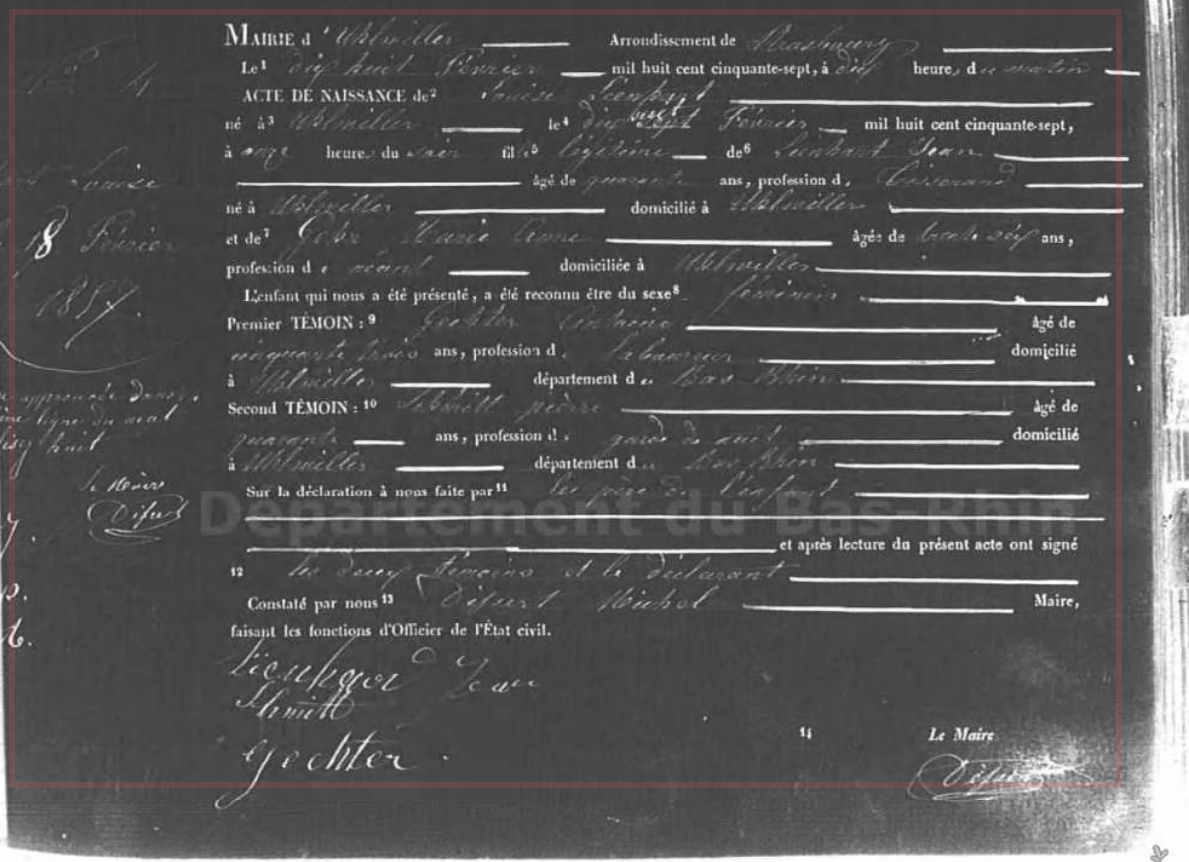 MAIRIE d'Uhlwiller Arrondissement de Strasbourg
Le 1 dix huit Février mil huit cent cinquante-sept, à dix heures, du matin
ACTE DE NAISSANCE de 2 Louise Lienhart
né à 3 Uhlwiller le 4 dix huit sept Février mil huit cent cinquante-sept,
à onze heures du soir fille 5 légitime de 6 Lienhart Jean
âgé de quarante ans, profession de Tisserand
né à Uhlwiller domicilié à Uhlwiller
et de 7 Marie Anne âgée de trente six ans,
profession de néant domiciliée à Uhlwiller
L'enfant qui nous a été présenté, a été reconnu être du sexe 8 féminin
Premier TÉMOIN : 9 Gechter Antoine âgé de
cinquante trois ans, profession de laboureur domicilié
à Uhlwiller département du Bas Rhin
Second TÉMOIN : 10 Schmitt pierre âgé de
quarante ans, profession de garde de nuit domicilié
à Uhlwiller département du Bas Rhin
Sur la déclaration à nous faite par 11 les père de l'enfant
et après lecture du présent acte ont signé
12 les deux témoins et le déclarant
Constaté par nous 13 Michel Maire,
faisant les fonctions d'Officier de l'État civil.
Lienhart Jean
Schmitt
Gechter
14 Le Maire
No 4
Louise
18 Février
1857.
approuvée dans
ligne du mot
huit
le Maire
Département du Bas-Rhin